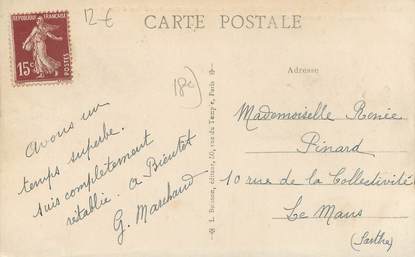 12€
CARTE POSTALE
REPUBLIQUE FRANÇAISE
15c
POSTES
18€
Avons un
temps superbe.
suis complètement
rétablie. a Bientôt
G. Marchand
éditeur, 30, rue du Temple, Paris
Adresse
Mademoiselle Renée
Pinard
10 rue de la Collectivité
Le Mans
(Sarthe)